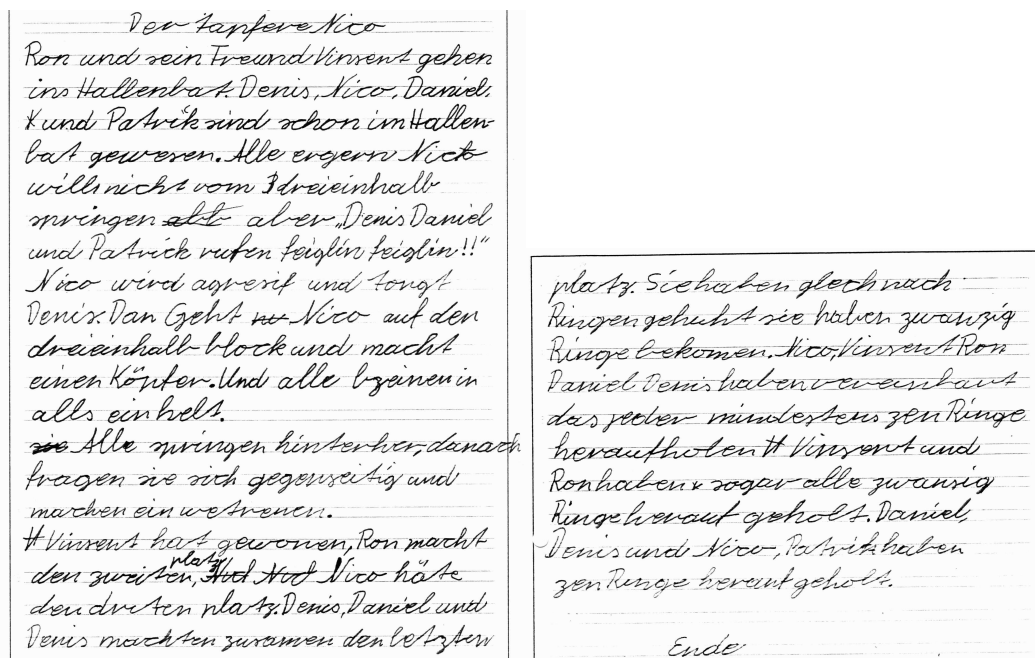 Der tapfere Nico
Ron und sein Freund Vinsent gehen
ins Hallenbat. Denis, Nico, Daniel,
und Patrik sind schon im Hallen-
bat gewesen. Alle ergern Nico
will nicht vom dreieinhalb
springen aber „Denis Daniel
und Patrick rufen feiglin feiglin!!"
Nico wird agresif und tongt
Denis. Dan Geht Nico auf den
dreieinhalb block und macht
einen Köpfer. Und alle bzeinen in
alls ein helt.
Alle springen hinterher, danach
fragen sie sich gegenseitig und
machen ein wetrenen.
Vinsent hat gewonen, Ron macht
den zweiten platz, Nico häte
den driten platz. Denis, Daniel und
Denis machten zusamen den letzten
platz. Sie haben glech nach
Ringen gehuht sie haben zwanzig
Ringe bekomen. Nico, Vinsent Ron
Daniel Denis haben vereinbaut
das jeder mindestens zen Ringe
heraufholen Vinsent und
Ron haben sogar alle zwansig
Ringe herauf geholt. Daniel,
Denis und Nico, Patrik haben
zen Ringe herauf geholt.
Ende